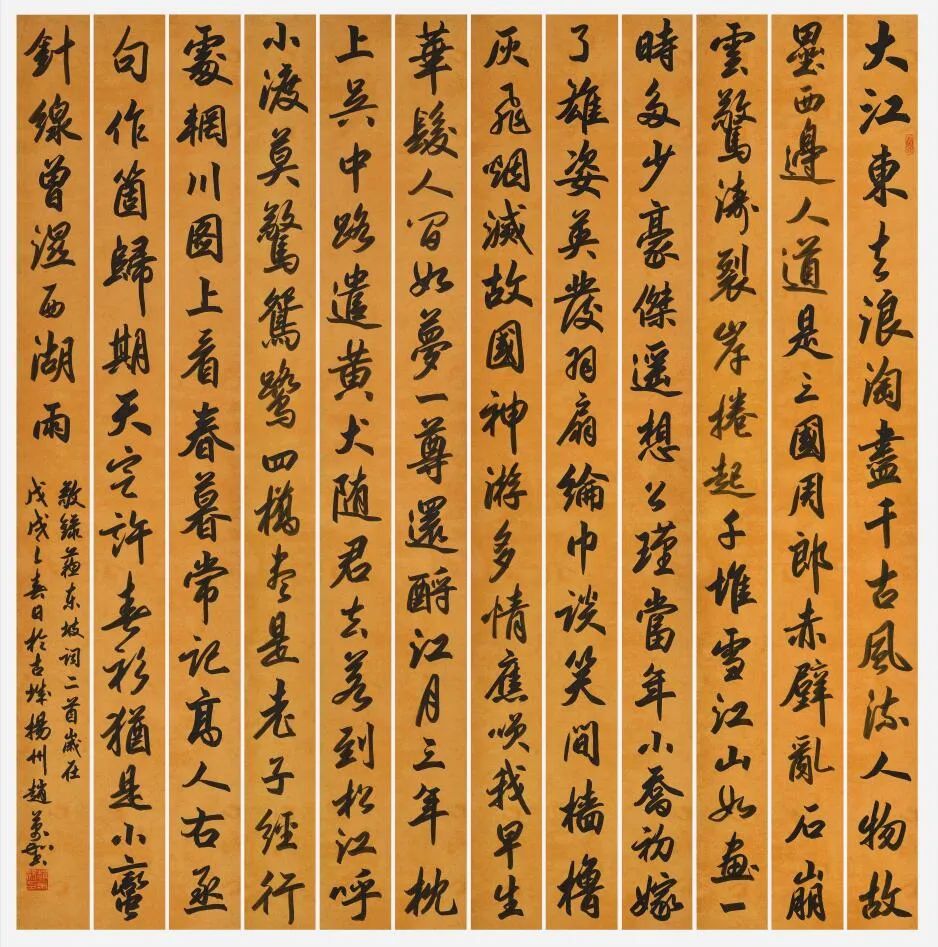 大江東去浪淘盡千古風流人物故
壘西邊人道是三國周郎赤壁亂石崩
雲驚濤裂岸捲起千堆雪江山如畫一
時多少豪傑遥想公瑾當年小喬初嫁
了雄姿英發羽扇綸巾談笑間檣櫓
灰飛烟滅故國神游多情應喚我早生
華髮人間如夢一尊還酹江月三年枕
上吳中路遣黄犬随君去若到松江呼
小渡莫驚鴛鷺四橋盡是老子經行
處輞川圖上看春暮常記高人右丞
句作箇歸期天定許春衫猶是小蠻
針線曾濕西湖雨
敬録蘇東坡詞二首歲在
戊戌之春日於古城揚州趙